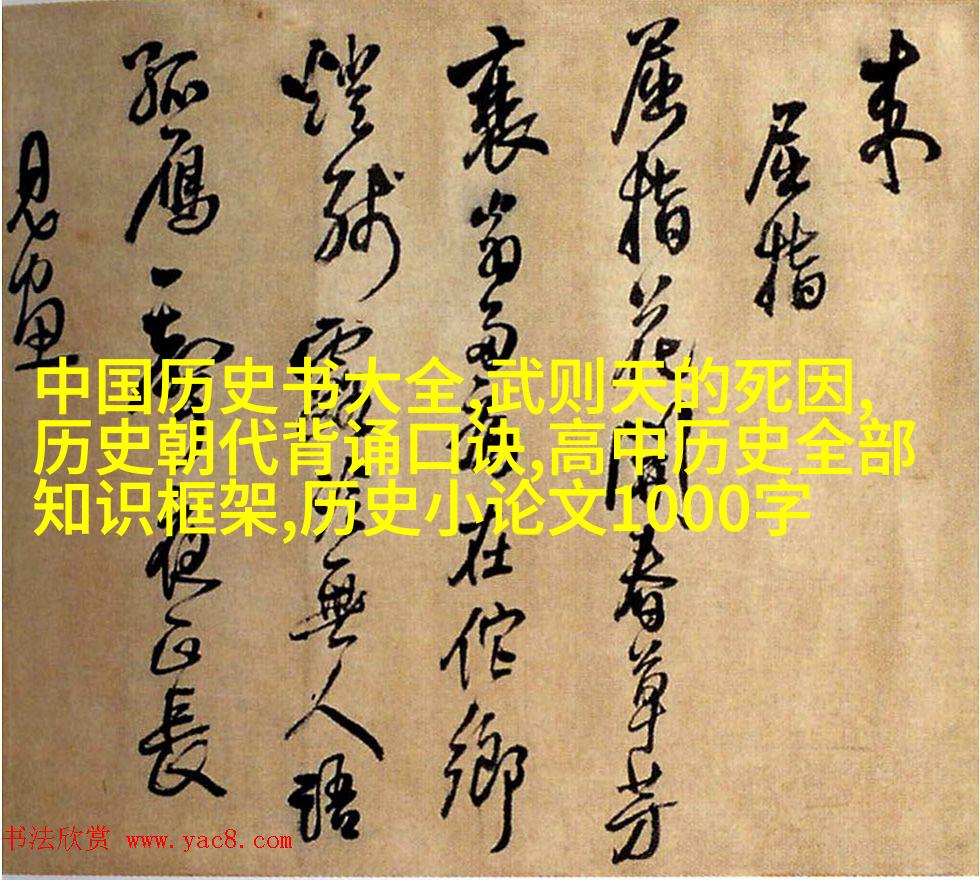 来
屈指
屈指花開春草芳
衰翁多病在佗鄉
燈殘無人語
孤雁一聲夜正長
見畫
中国历史书大全,武则天的死因,
历史朝代背诵口诀,高中历史全部
知识框架,历史小论文1000字
书法欣赏 www.yac8.com